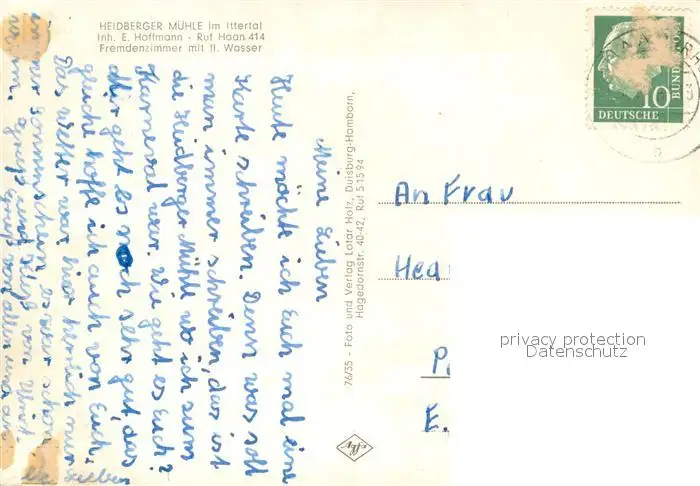 HEIDBERGER MÜHLE im Ittertal
Inh. E. Hoffmann - Ruf Haan 414
Fremdenzimmer mit fl. Wasser
Meine Lieben
Heute möchte ich Euch mal eine
Karte schreiben. Denn was soll
man immer schreiben, das ist
die Heidberger Mühle wo ich zum
Karneval war. Wie geht es Euch?
Mir geht es noch sehr gut, das
gleiche hoffe ich auch von Euch.
Das Wetter war hier herrlich nur
immer Sonnenschein es war schön
Gruß und
Gruß von allen
Lieben
76/55 - Foto und Verlag Lotar Holz, Duisburg-Hamborn,
Hagedornstr. 40-42, Ruf 51594
Agfa
DEUTSCHE
BUNDESPOST
10
HAAN
An Frau
Hed
P
E.
privacy protection
Datenschutz